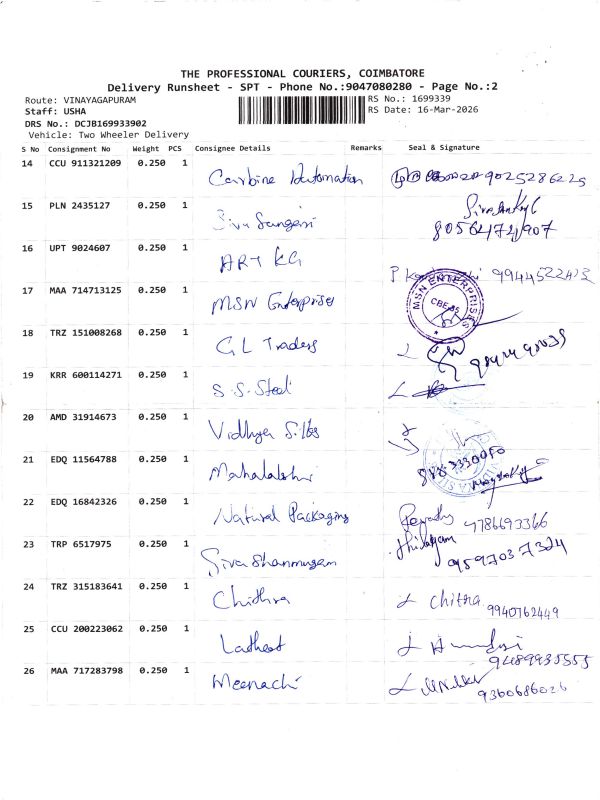 THE PROFESSIONAL COURIERS, COIMBATORE
Delivery Runsheet - SPT - Phone No.:9047080280 - Page No.:2
Route: VINAYAGAPURAM
RS No.: 1699339
Staff: USHA
RS Date: 16-Mar-2026
DRS No.: DCJB169933902
Vehicle: Two Wheeler Delivery
S No Consignment No Weight PCS Consignee Details Remarks Seal & Signature
14 CCU 911321209 0.250 1 Carbine Automation 9025286225
15 PLN 2435127 0.250 1 Siva Sangari
16 UPT 9024607 0.250 1 ART KG
17 MAA 714713125 0.250 1 MSN Enterprises MSN ENTERPRISES
18 TRZ 151008268 0.250 1 G L Traders
19 KRR 600114271 0.250 1 S.S. Steel
20 AMD 31914673 0.250 1 Vidhya Silks
21 EDQ 11564788 0.250 1 Mahalakshi
22 EDQ 16842326 0.250 1 Natural Packaging 9786693366
23 TRP 6517975 0.250 1 Siva Shanmugam 9597037324
24 TRZ 315183641 0.250 1 Chithra Chitra 9940762449
25 CCU 200223062 0.250 1 9489935555
26 MAA 717283798 0.250 1 Meenachi 9360686026